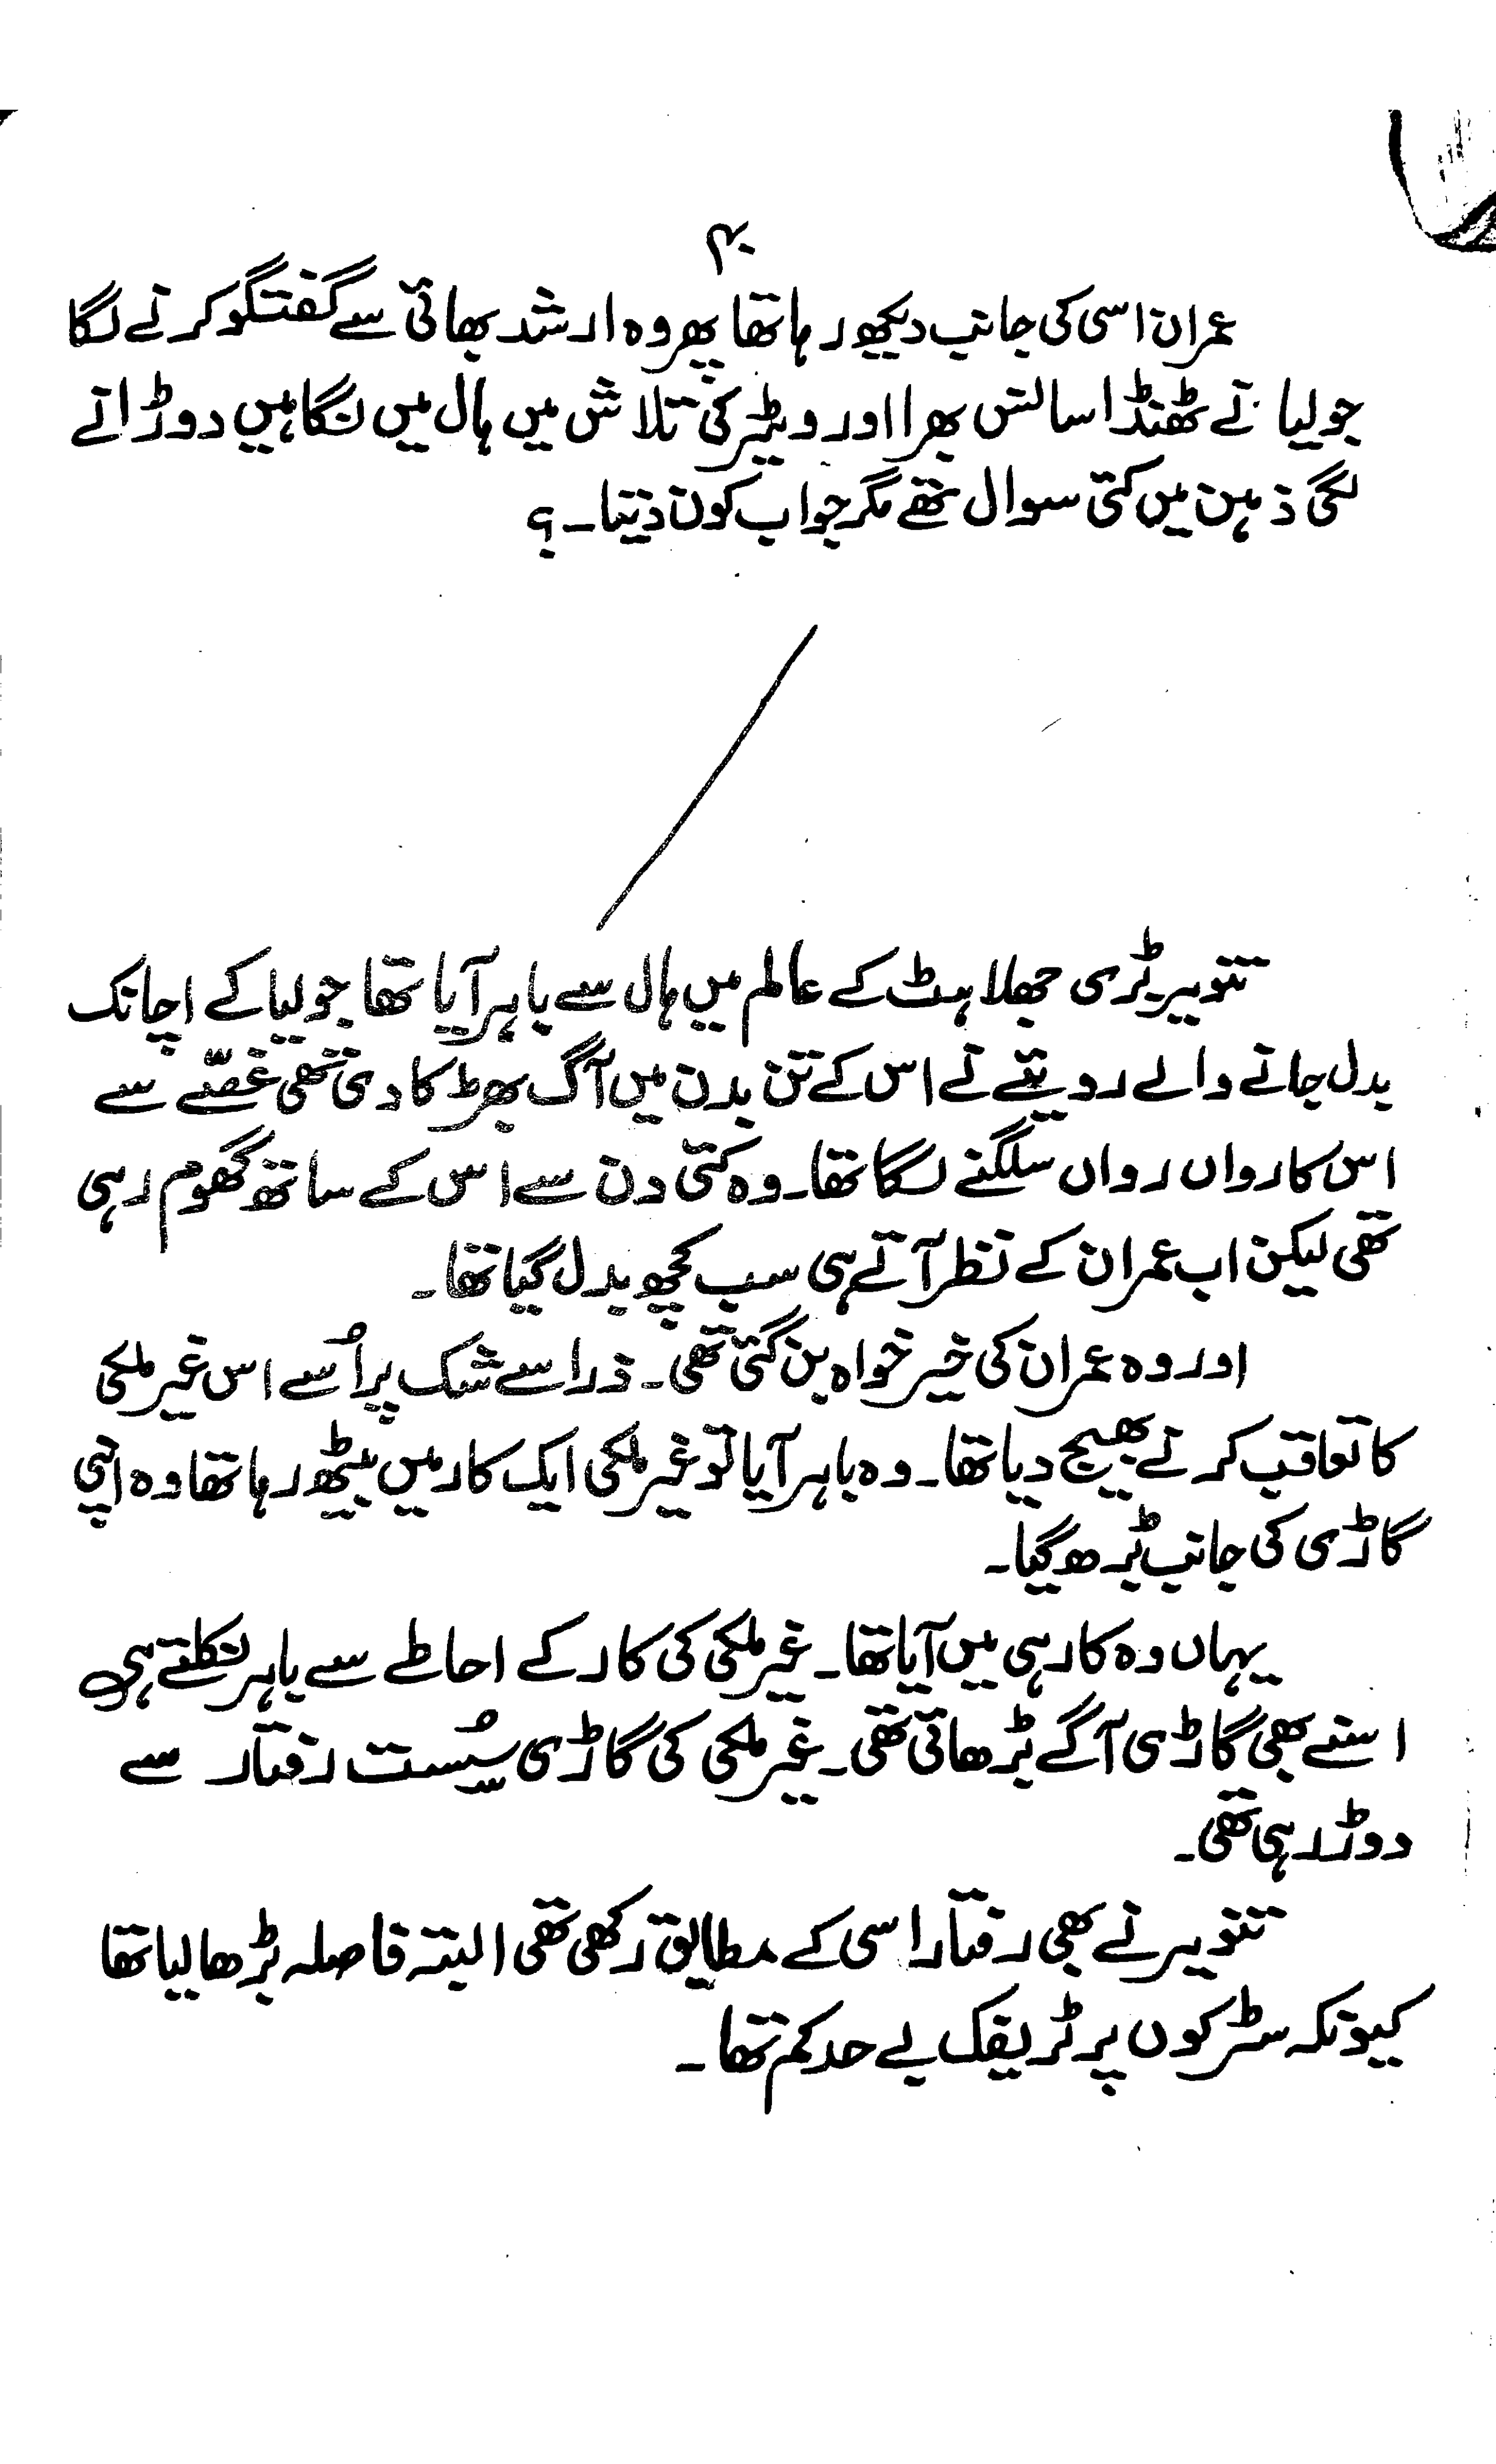 ۴۰
عمران اسی کی جانب دیکھ رہا تھا پھر وہ ارشد بھائی سے گفتگو کرنے لگا
جولیا نے ٹھنڈا سانس بھرا اور ویٹر کی تلاش میں ہال میں نگاہیں دوڑانے
لگی ذہن میں کئی سوال تھے مگر جواب کون دیتا۔؟
تنویر بڑی جھلاہٹ کے عالم میں ہال سے باہر آیا تھا جولیا کے اچانک
بدل جانے والے رویئے نے اس کے تن بدن میں آگ بھڑکا دی تھی غصّے سے
اس کا رواں رواں سلگنے لگا تھا۔ وہ کئی دن سے اس کے ساتھ گھوم رہی
تھی لیکن اب عمران کے نظر آتے ہی سب کچھ بدل گیا تھا۔
اور وہ عمران کی خیر خواہ بن گئی تھی۔ ذرا سے شک پر اُسے اس غیر ملکی
کا تعاقب کرنے بھیج دیا تھا۔ وہ باہر آیا تو غیر ملکی ایک کار میں بیٹھ رہا تھا وہ اپنی
گاڑی کی جانب بڑھ گیا۔
یہاں وہ کار ہی میں آیا تھا۔ غیر ملکی کی کار کے احاطے سے باہر نکلتے ہی
اسنے بھی گاڑی آگے بڑھائی تھی۔ غیر ملکی کی گاڑی سُست رفتار سے
دوڑ رہی تھی۔
تنویر نے بھی رفتار اسی کے مطابق رکھی تھی البتہ فاصلہ بڑھا لیا تھا
کیونکہ سڑکوں پر ٹریفک بے حد کم تھا۔